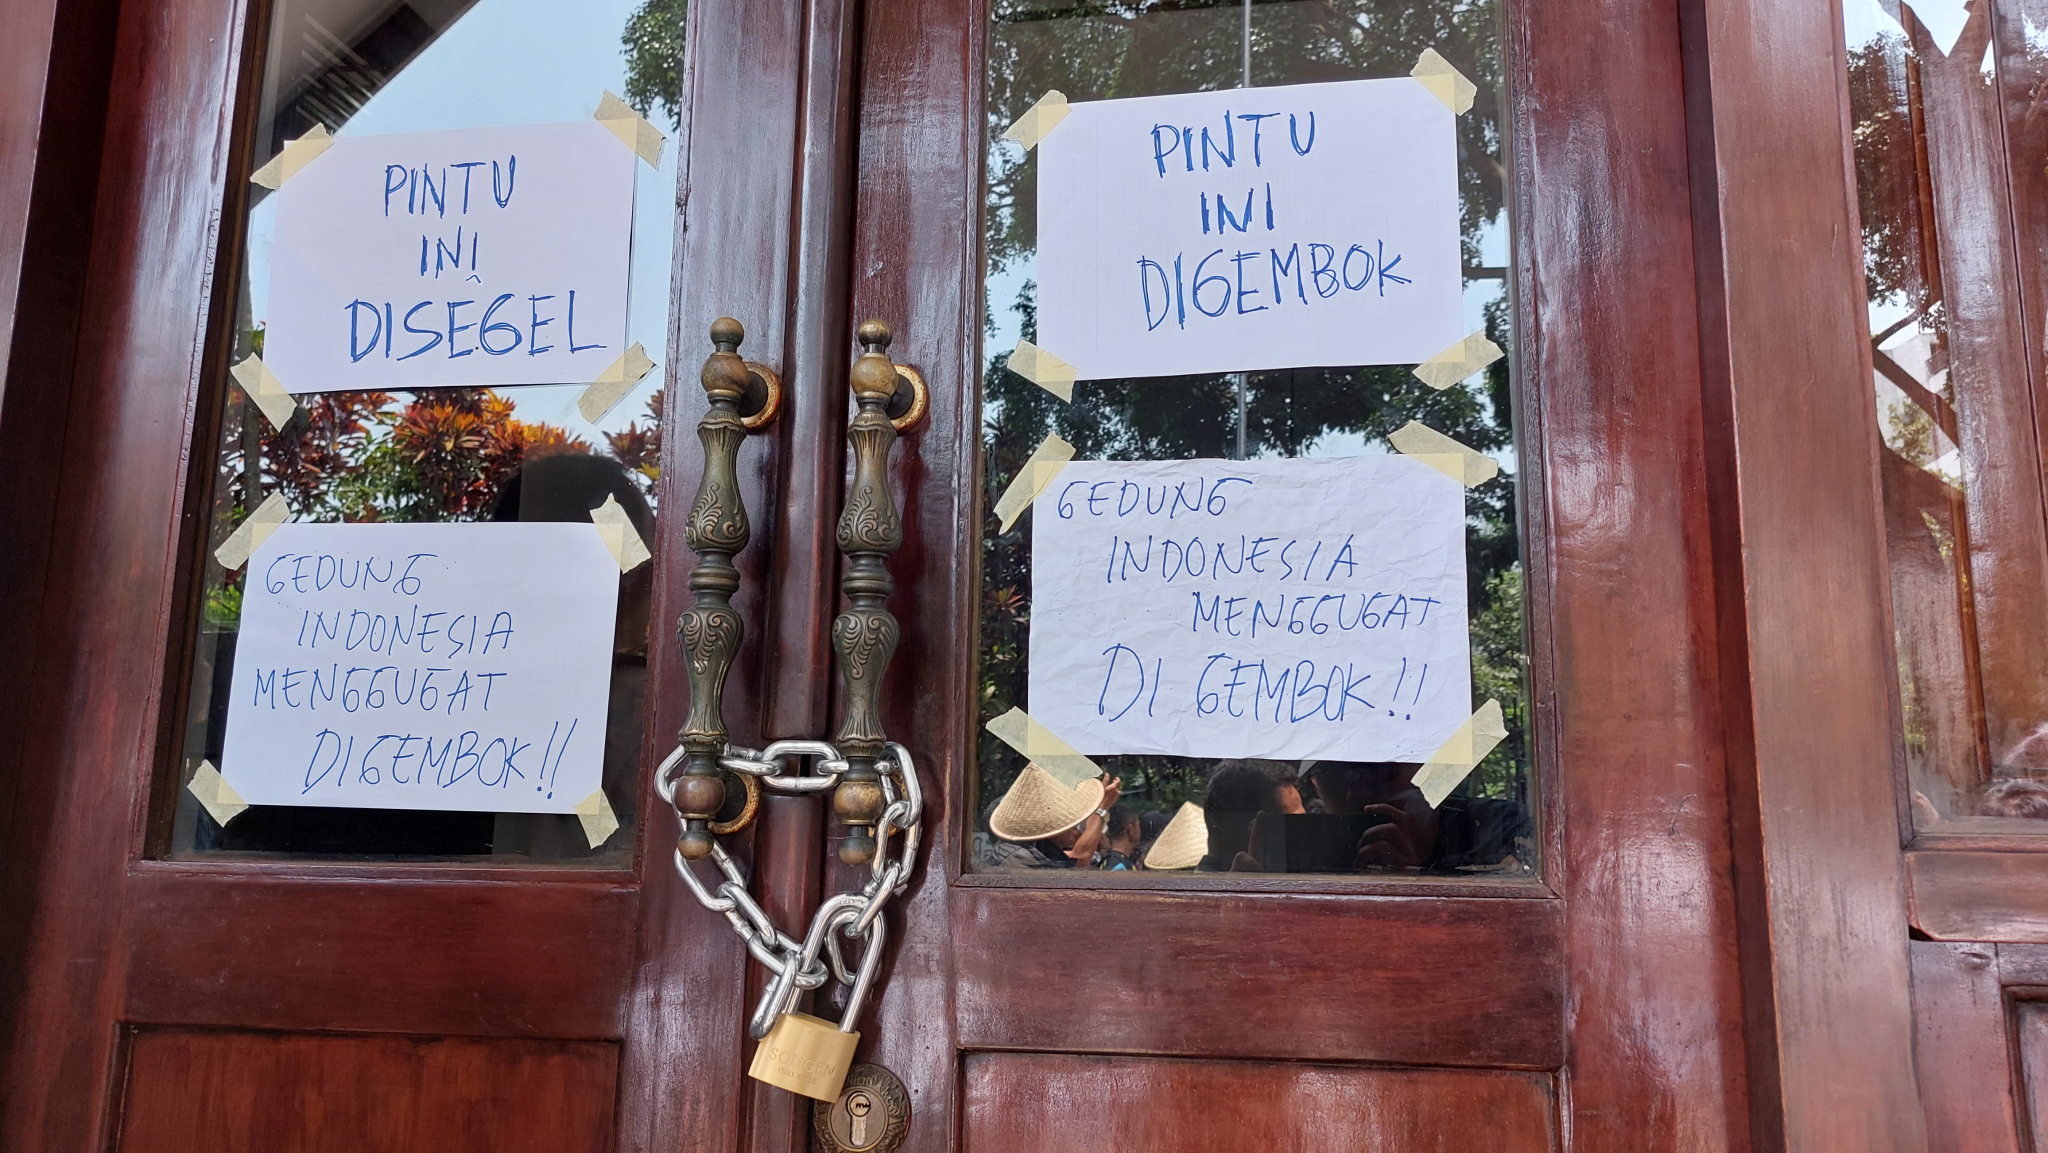 PINTU
INI
DISEGEL
PINTU
INI
DIGEMBOK
GEDUNG
INDONESIA
MENGGUGAT
DIGEMBOK!!
GEDUNG
INDONESIA
MENGGUGAT
DI GEMBOK!!